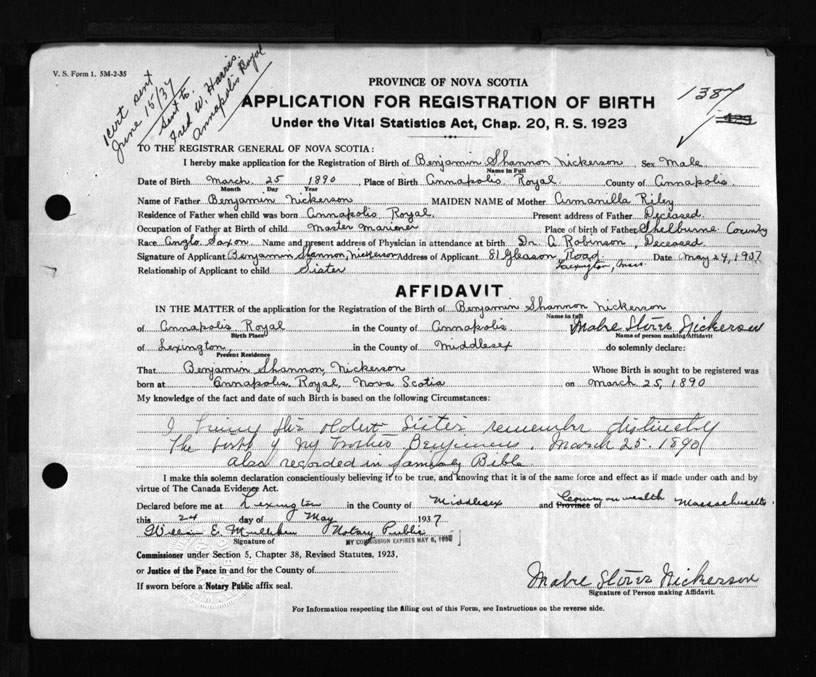 V. S. Form 1. 5M-2-35
1 cert sent
June 15/37
sent to
Fred W. Harris
Annapolis Royal
PROVINCE OF NOVA SCOTIA
APPLICATION FOR REGISTRATION OF BIRTH
Under the Vital Statistics Act, Chap. 20, R. S. 1923
1387
TO THE REGISTRAR GENERAL OF NOVA SCOTIA:
I hereby make application for the Registration of Birth of Benjamin Shannon Nickerson Sex Male
Name in Full
Date of Birth March 25 1890, Place of Birth Annapolis Royal County of Annapolis.
Month Day Year
Name of Father Benjamin Nickerson MAIDEN NAME of Mother Armanilla Riley
Residence of Father when child was born Annapolis Royal. Present address of Father Deceased.
Occupation of Father at Birth of child Master Mariner Place of birth of Father Shelburne County
Race Anglo Saxon. Name and present address of Physician in attendance at birth Dr. A. Robinson, Deceased.
Signature of Applicant Benjamin Shannon Nickerson Address of Applicant 81 Gleason Road Date May 24, 1937
Lexington, Mass.
Relationship of Applicant to child Sister
AFFIDAVIT
IN THE MATTER of the application for the Registration of the Birth of Benjamin Shannon Nickerson
Name in full
of Annapolis Royal in the County of Annapolis Nickerson
Birth Place Name of person making Affidavit
of Lexington, in the County of Middlesex do solemnly declare:
Present Residence
That Benjamin Shannon Nickerson Whose Birth is sought to be registered was
born at Annapolis Royal, Nova Scotia on March 25, 1890
My knowledge of the fact and date of such Birth is based on the following Circumstances:
I being his oldest Sister remember distinctly
The birth of my brother Benjamin. March 25. 1890
also recorded in family Bible
I make this solemn declaration conscientiously believing it to be true, and knowing that it is of the same force and effect as if made under oath and by
virtue of The Canada Evidence Act.
Declared before me at Lexington in the County of Middlesex and Province of Commonwealth Massachusetts
this 24 day of May 1937
William E. Mulliken Notary Public
Signature of MY COMMISSION EXPIRES MAY 6,
Commissioner under Section 5, Chapter 38, Revised Statutes, 1923,
or Justice of the Peace in and for the County of
If sworn before a Notary Public affix seal.
Nickerson
Signature of Person making Affidavit.
For Information respecting the filling out of this Form, see Instructions on the reverse side.